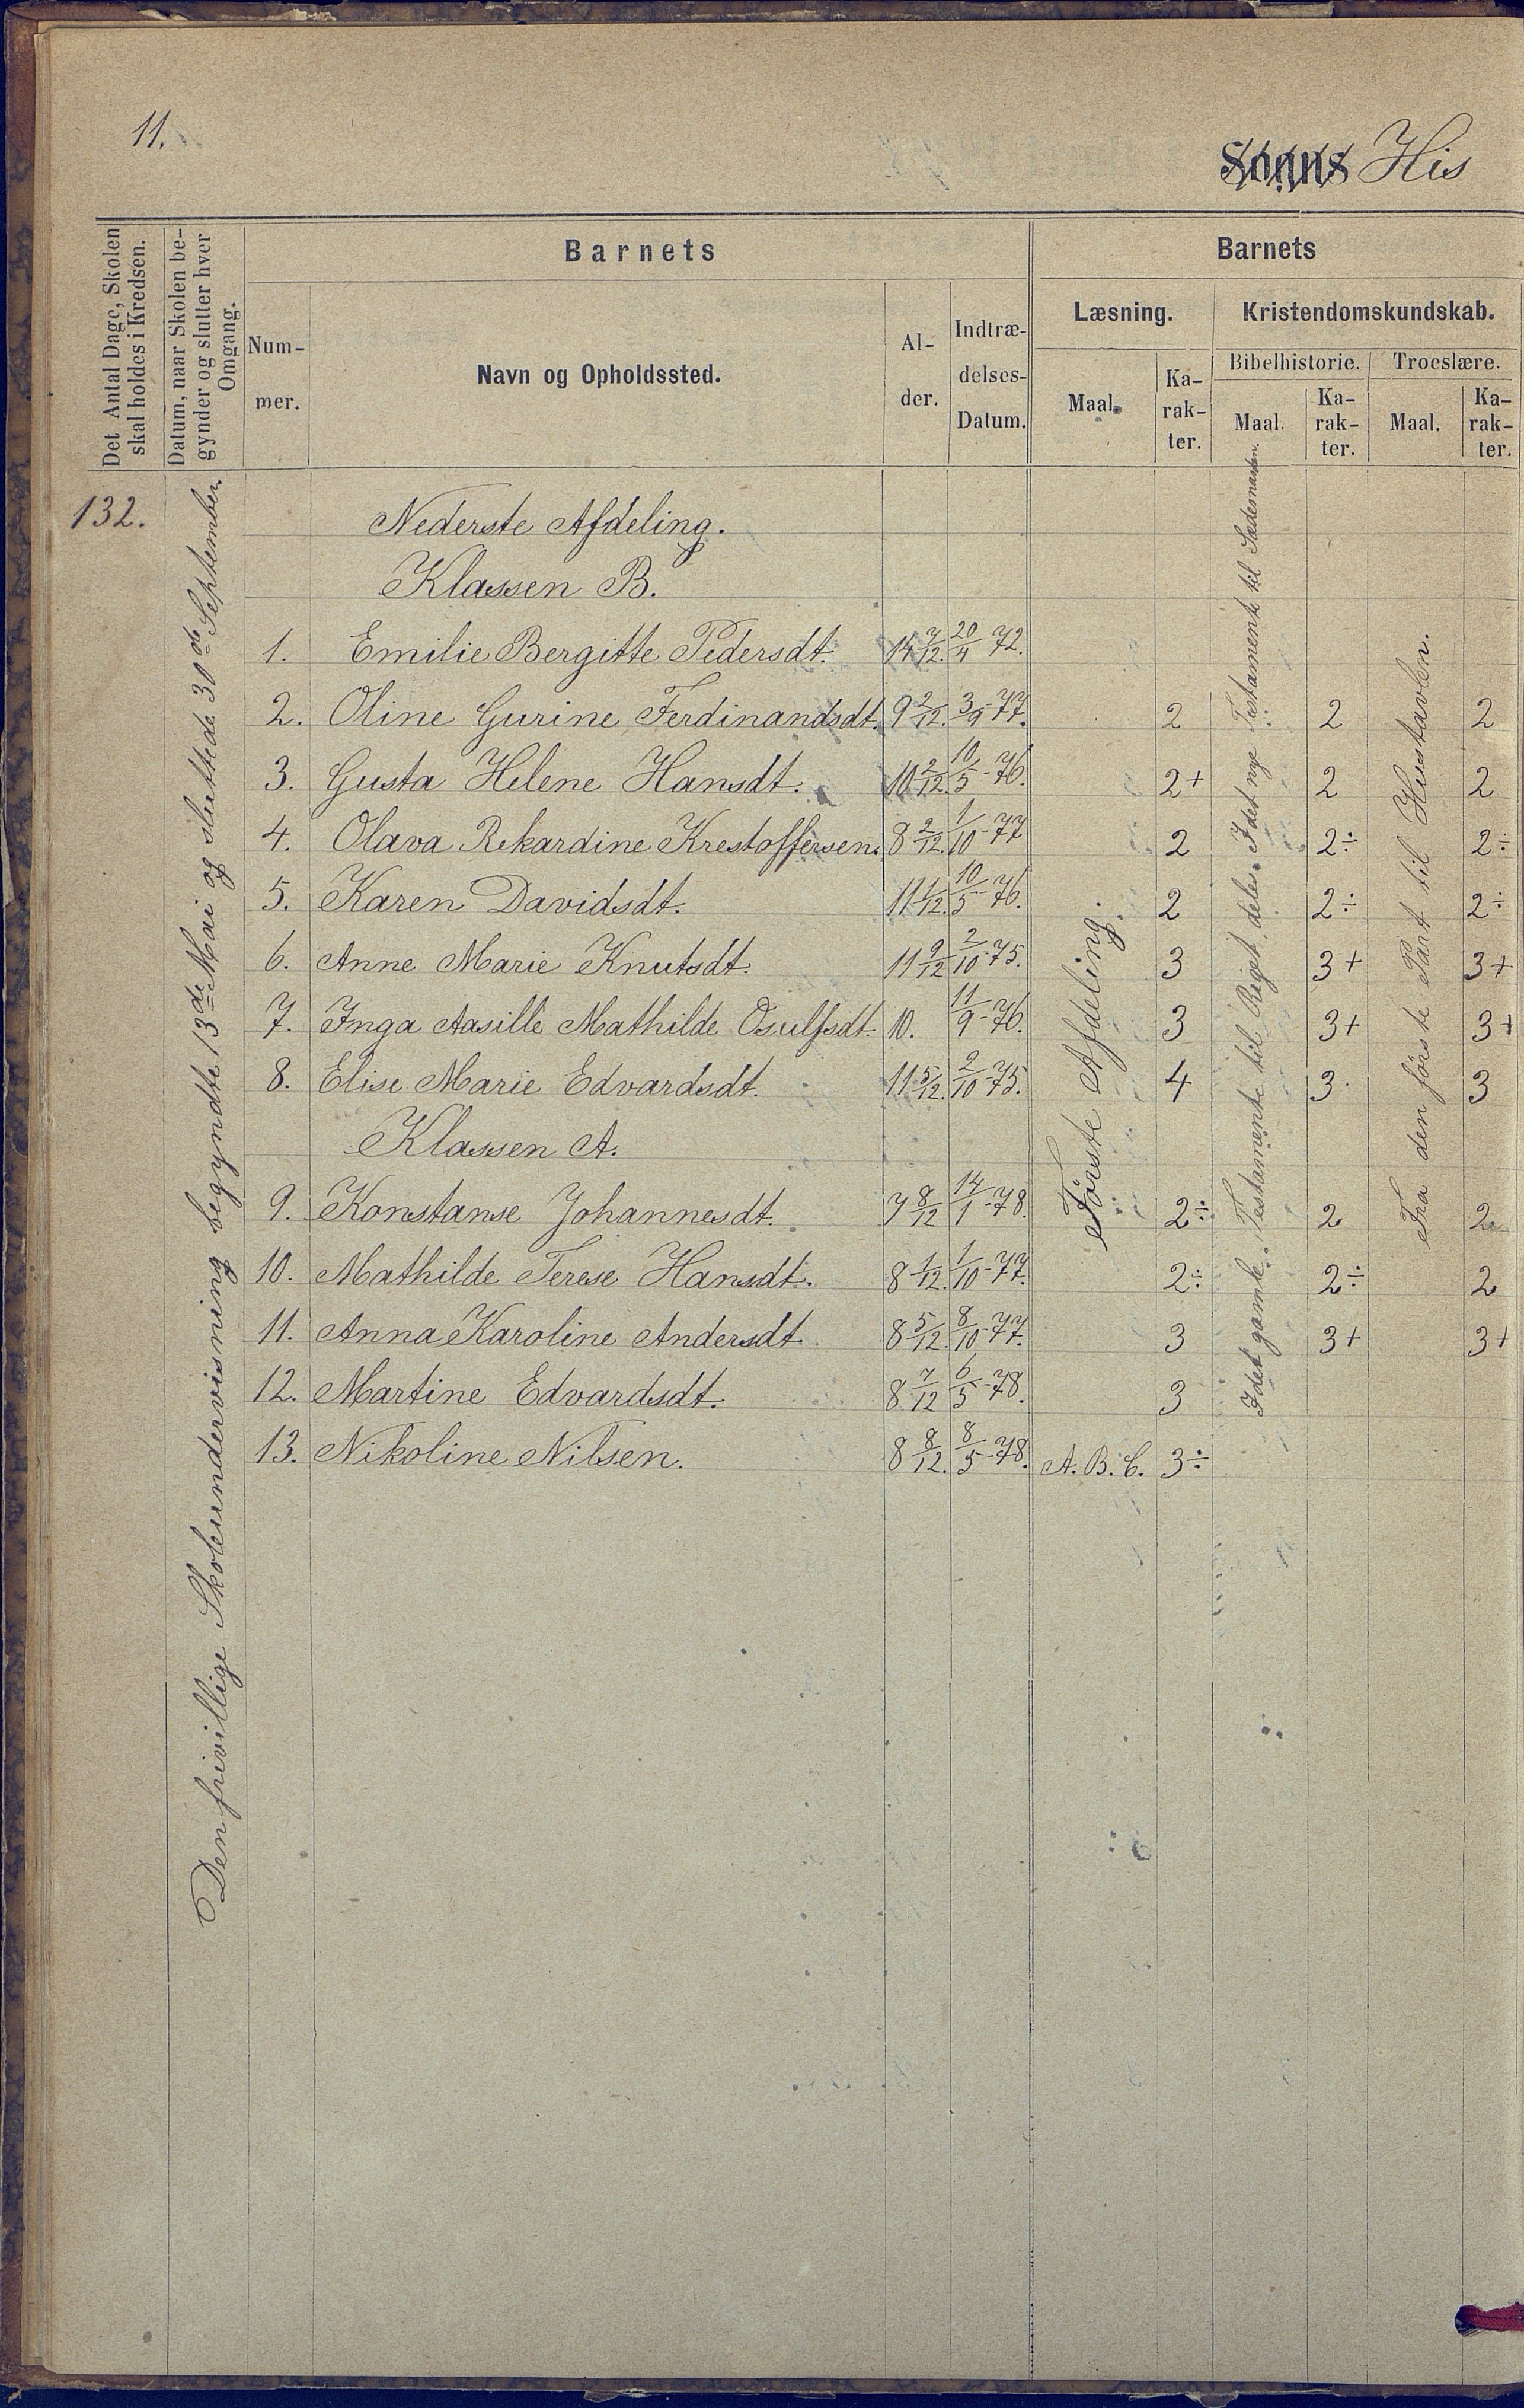 11.
Sogns His
Det Antal Dage, Skolen
skal holdes i Kredsen.
Datum, naar Skolen be-
gynder og slutter hver
Omgang.
Barnets
Num-
mer.
Navn og Opholdssted.
Al-
der.
Indtræ-
delses-
Datum.
Barnets
Læsning.
Maal.
Ka-
rak-
ter.
Kristendomskundskab.
Bibelhistorie.
Maal.
Ka-
rak-
ter.
Troeslære.
Maal.
Ka-
rak-
ter.
132.
Den frivillige Skoleundervisning begyndte 13de Mai og sluttede 30de September.
Første Afdeling.
I det gamle Testamente til Riget deles. I det nye Testamente til Sædemanden.
Fra den første Part til Hustavlen.
Nederste Afdeling.
Klassen B.
1. Emilie Bergitte Pedersdt. 14 7/12. 20/4 72.
2. Oline Gurine Ferdinandsdt. 9 2/12. 3/9-77. 2 2 2
3. Gusta Helene Hansdt. 10 2/12. 10/5-76. 2+ 2 2
4. Olava Rekardine Krestoffersen. 8 2/12. 1/10-77 2 2÷ 2÷
5. Karen Davidsdt. 11 1/12. 10/5-76. 2 2÷ 2÷
6. Anne Marie Knutsdt. 11 9/12 2/10-75. 3 3+ 3+
7. Inga Aasille Mathilde Osulfsdt. 10. 11/9-76. 3 3+ 3+
8. Elise Marie Edvardsdt. 11 5/12. 2/10-75. 4 3. 3
Klassen A.
9. Konstanse Johannesdt. 7 8/12 14/1-78. 2÷ 2 2
10. Mathilde Terese Hansdt. 8 1/12. 1/10-77. 2÷ 2÷ 2
11. Anna Karoline Andersdt. 8 5/12. 8/10-77. 3 3+ 3+
12. Martine Edvardsdt. 8 7/12 6/5-78. 3
13. Nikoline Nilsen. 8 8/12. 8/5-78. A. B. C. 3÷